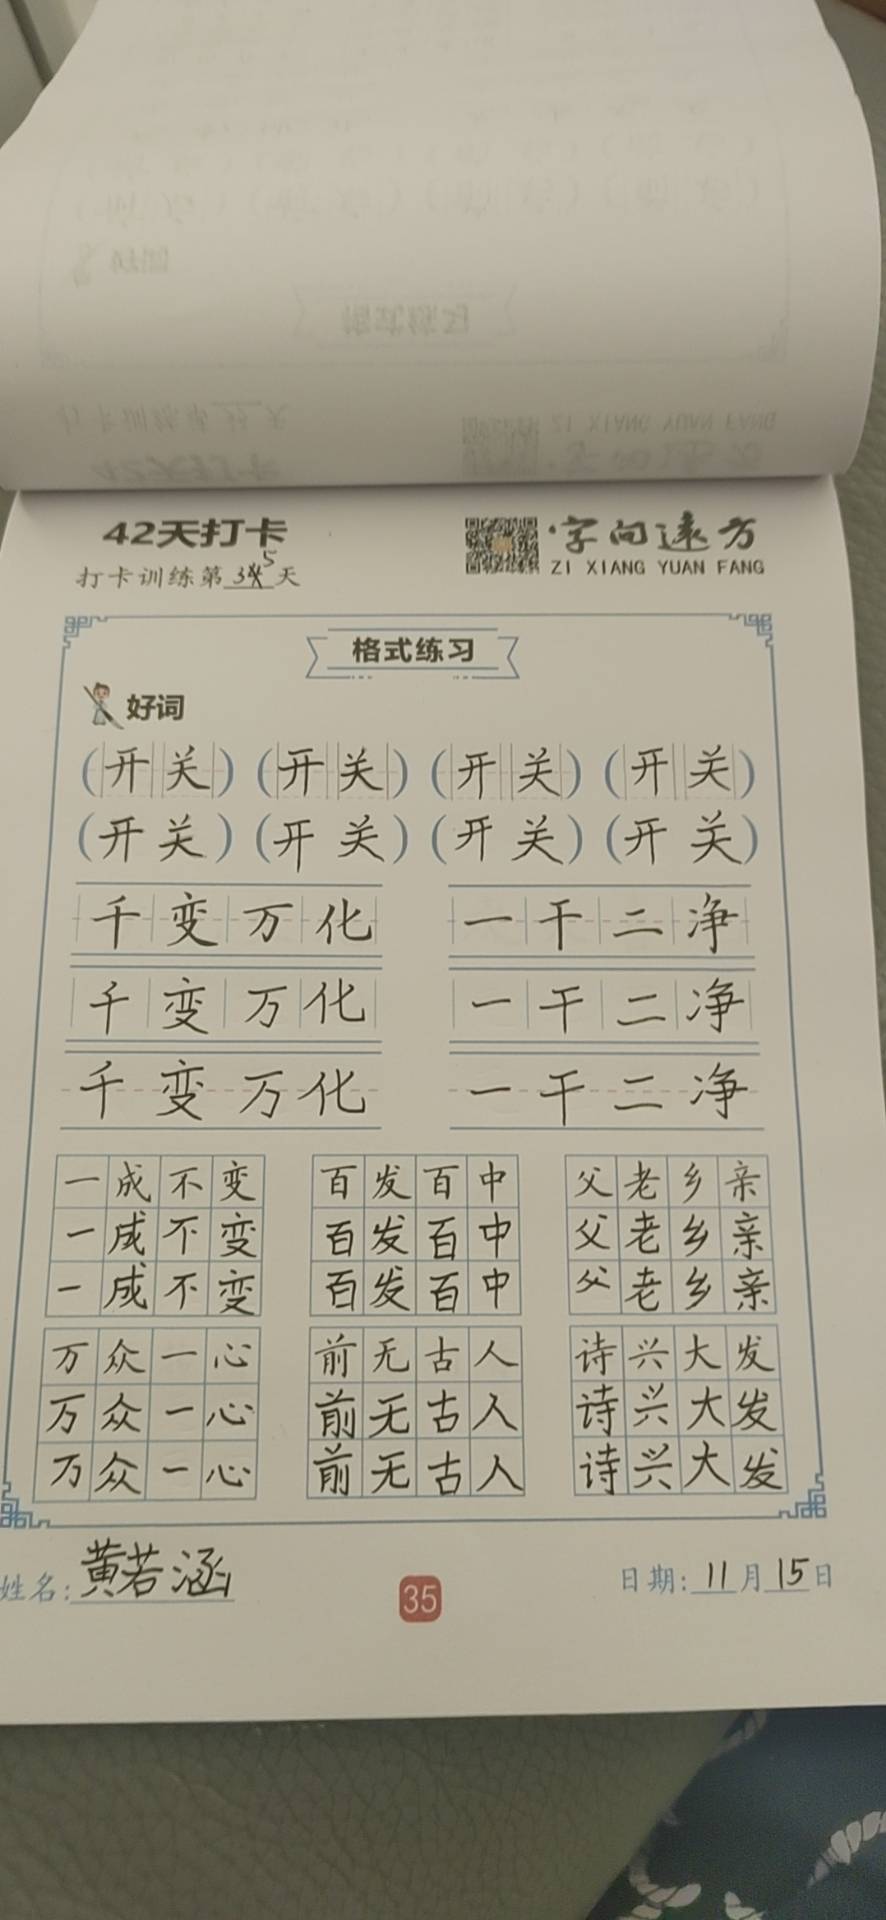 42天打卡
字向远方
打卡训练第35天
ZI XIANG YUAN FANG
格式练习
好词
(开关) (开关) (开关) (开关)
(开关) (开关) (开关) (开关)
千变万化 一干二净
千变万化 一干二净
千变万化 一干二净
一成不变 百发百中 父老乡亲
一成不变 百发百中 父老乡亲
一成不变 百发百中 父老乡亲
万众一心 前无古人 诗兴大发
万众一心 前无古人 诗兴大发
万众一心 前无古人 诗兴大发
姓名:黄若涵 35 日期:11月15日